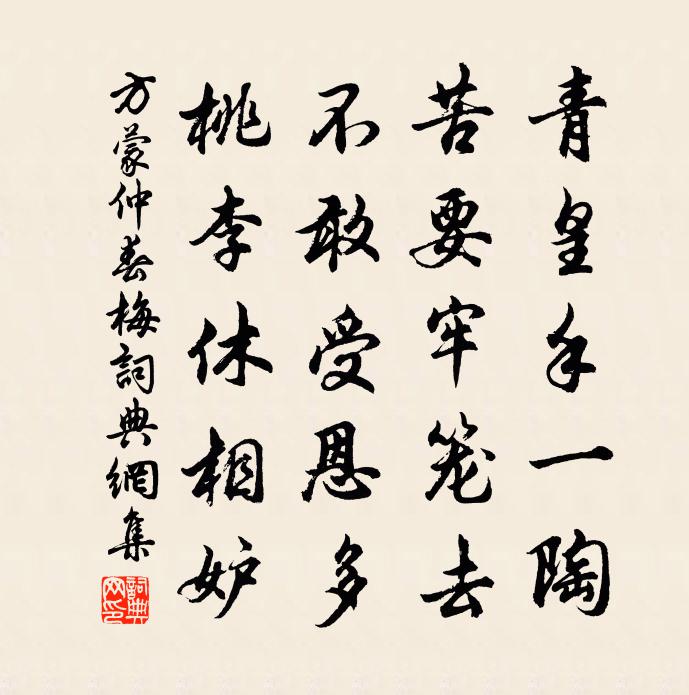 青皇手一陶
苦要牢笼去
不敢受恩多
桃李休相妒
方蒙仲春梅詞典網集
詞典网印